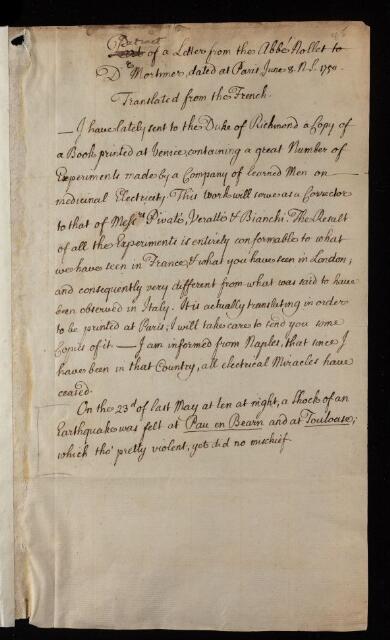 Extract
of a Letter from the Abbé Nollet to
Dr Mortimer, dated at Paris June 8. N.S. 1750.
Translated from the French.
— I have lately sent to the Duke of Richmond a Copy of
a Book printed at Venice, containing a great Number of
Experiments made by a Company of learned Men on
medicinal Electricity. This Work will serve as a Corrector
to that of Messrs Pivati, Veratti & Bianchi. The Result
of all the Experiments is entirely conformable to what
we have seen in France, & what you have seen in London;
and consequently very different from what was said to have
been observed in Italy. It is actually translating in order
to be printed at Paris; I will take care to send you some
Copies of it — I am informed from Naples, that since I
have been in that Country, all electrical Miracles have
ceased.
On the 23d of last May at ten at night, a Shock of an
Earthquake was felt at Pau en Bearn and at Toulouse;
which tho' pretty violent, yet did no mischief.